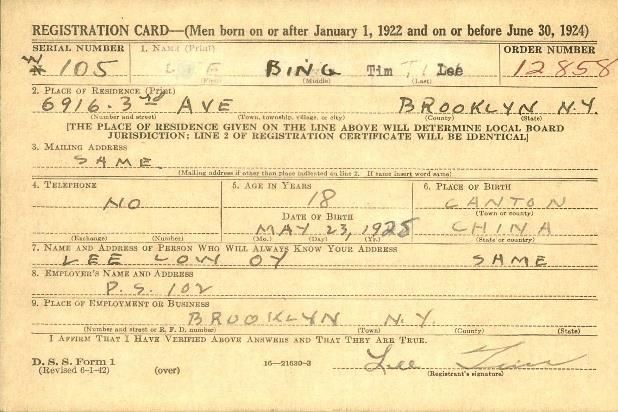 REGISTRATION CARD—(Men born on or after January 1, 1922 and on or before June 30, 1924)
SERIAL NUMBER 1. NAME (Print) ORDER NUMBER
W
N 105 LEE BING Tim Lee 12858
(First) (Middle) (Last)
2. PLACE OF RESIDENCE (Print)
6916. 3rd AVE BROOKLYN N.Y.
(Number and street) (Town, township, village, or city) (County) (State)
[THE PLACE OF RESIDENCE GIVEN ON THE LINE ABOVE WILL DETERMINE LOCAL BOARD
JURISDICTION; LINE 2 OF REGISTRATION CERTIFICATE WILL BE IDENTICAL]
3. MAILING ADDRESS
SAME.
(Mailing address if other than place indicated on line 2. If same insert word same)
4. TELEPHONE 5. AGE IN YEARS 6. PLACE OF BIRTH
NO 18 CANTON
(Town or county)
DATE OF BIRTH
MAY 23, 1925 CHINA
(Exchange) (Number) (Mo.) (Day) (Yr.) (State or country)
7. NAME AND ADDRESS OF PERSON WHO WILL ALWAYS KNOW YOUR ADDRESS
LEE LOW OY SAME
8. EMPLOYER'S NAME AND ADDRESS
P.S. 102
9. PLACE OF EMPLOYMENT OR BUSINESS
BROOKLYN N.Y
(Number and street or R. F. D. number) (Town) (County) (State)
I AFFIRM THAT I HAVE VERIFIED ABOVE ANSWERS AND THAT THEY ARE TRUE.
D. S. S. Form 1
(Revised 6-1-42) (over) 16—21630-3 Lee Tim
(Registrant's signature)